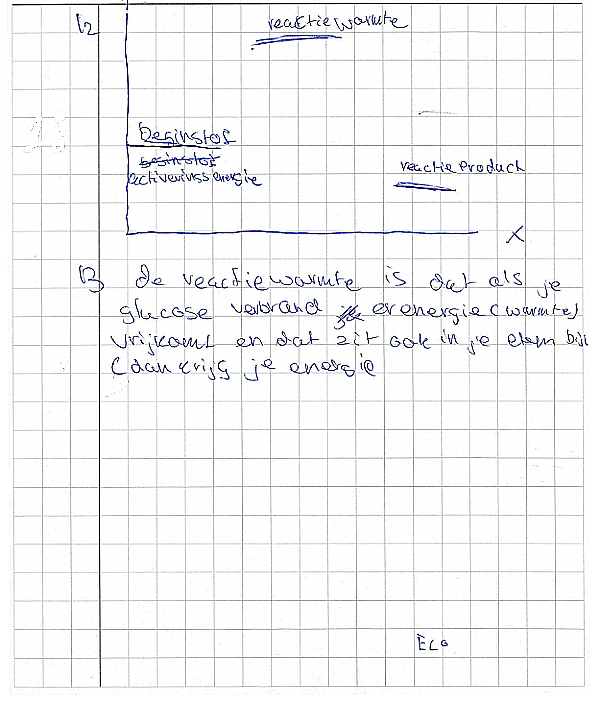 12 reactiewarmte
beginstof
beginstof
activeringsenergie
reactieproduct
X
13 de reactiewarmte is dat als je
glucose verbrand er energie (warmte)
vrijkomt en dat zit ook in je eten bij
(dan krijg je energie